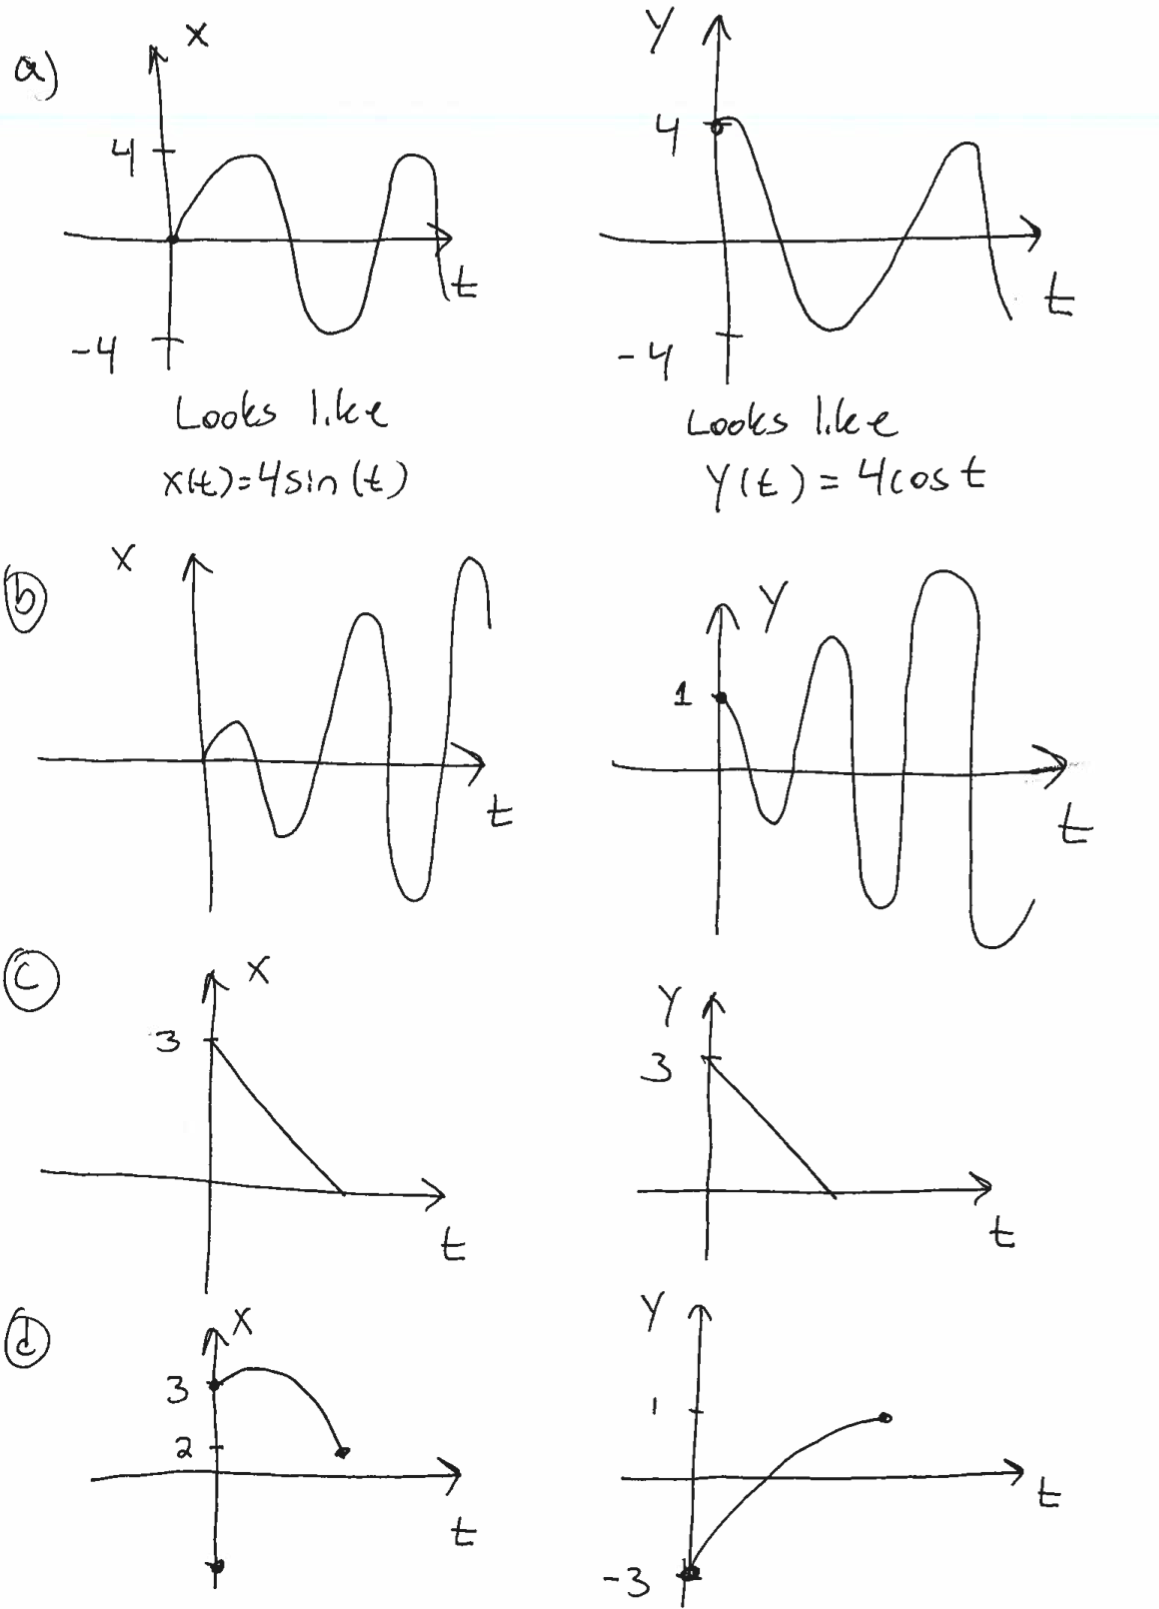 a)
x
4
-4
t
Looks like
x(t)=4sin(t)
y
4
-4
t
Looks like
y(t) = 4cos t
b
x
t
y
1
t
c
x
3
t
y
3
t
d
x
3
2
t
y
1
-3
t